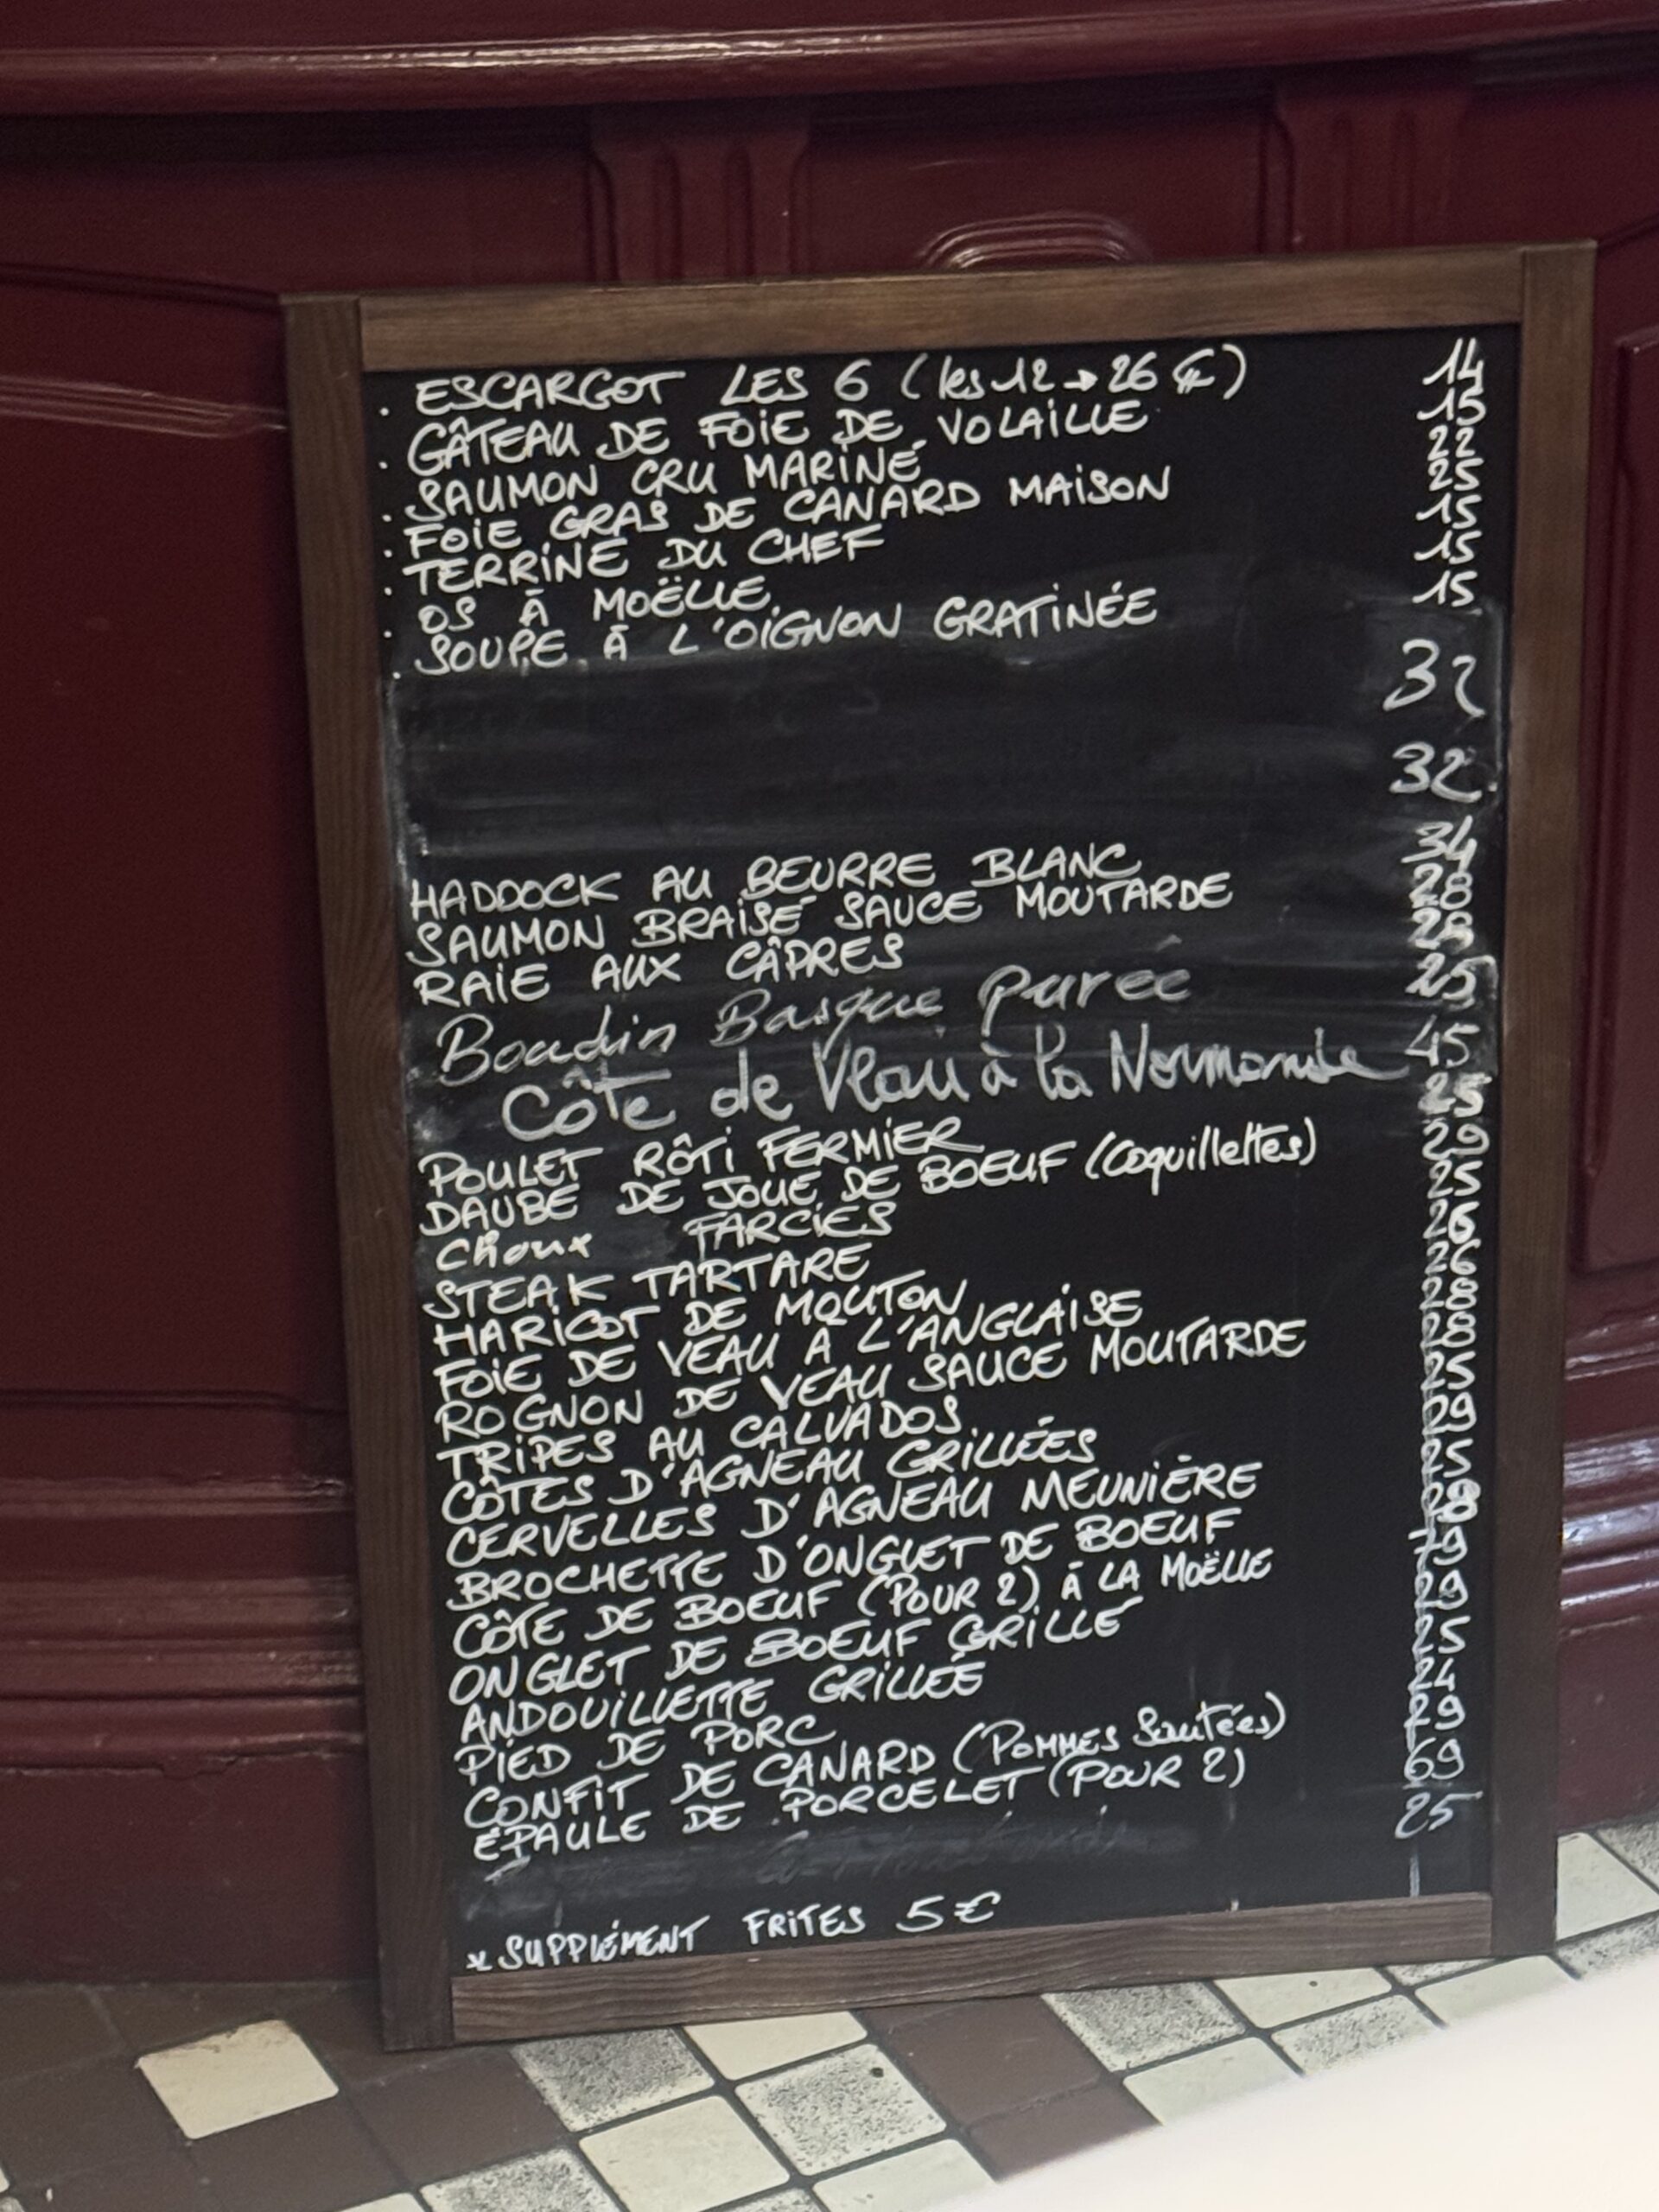 . ESCARGOT LES 6 (les 12 → 26 €) 14
. GÂTEAU DE FOIE DE VOLAILLE 15
. SAUMON CRU MARINÉ 22
. FOIE GRAS DE CANARD MAISON 25
. TERRINE DU CHEF 15
. OS À MOËLLE 15
. SOUPE À L'OIGNON GRATINÉE 15
32
32
HADDOCK AU BEURRE BLANC 34
SAUMON BRAISÉ SAUCE MOUTARDE 28
RAIE AUX CÂPRES 28
Boudin Basque purée 25
Côte de Veau à la Normande 45
POULET RÔTI FERMIER 25
DAUBE DE JOUE DE BOEUF (Coquillettes) 29
Choux FARCIES 25
STEAK TARTARE 26
HARICOT DE MOUTON 26
FOIE DE VEAU A L'ANGLAISE 28
ROGNON DE VEAU SAUCE MOUTARDE 28
TRIPES AU CALVADOS 25
CÔTES D'AGNEAU GRILLÉES 29
CERVELLES D'AGNEAU MEUNIÈRE 25
BROCHETTE D'ONGLET DE BOEUF 28
CÔTE DE BOEUF (POUR 2) À LA MOËLLE 79
ONGLET DE BOEUF GRILLÉ 29
ANDOUILLETTE GRILLÉE 25
PIED DE PORC 24
CONFIT DE CANARD (POMMES Sautées) 29
ÉPAULE DE PORCELET (POUR 2) 69
25
* SUPPLÉMENT FRITES 5 €